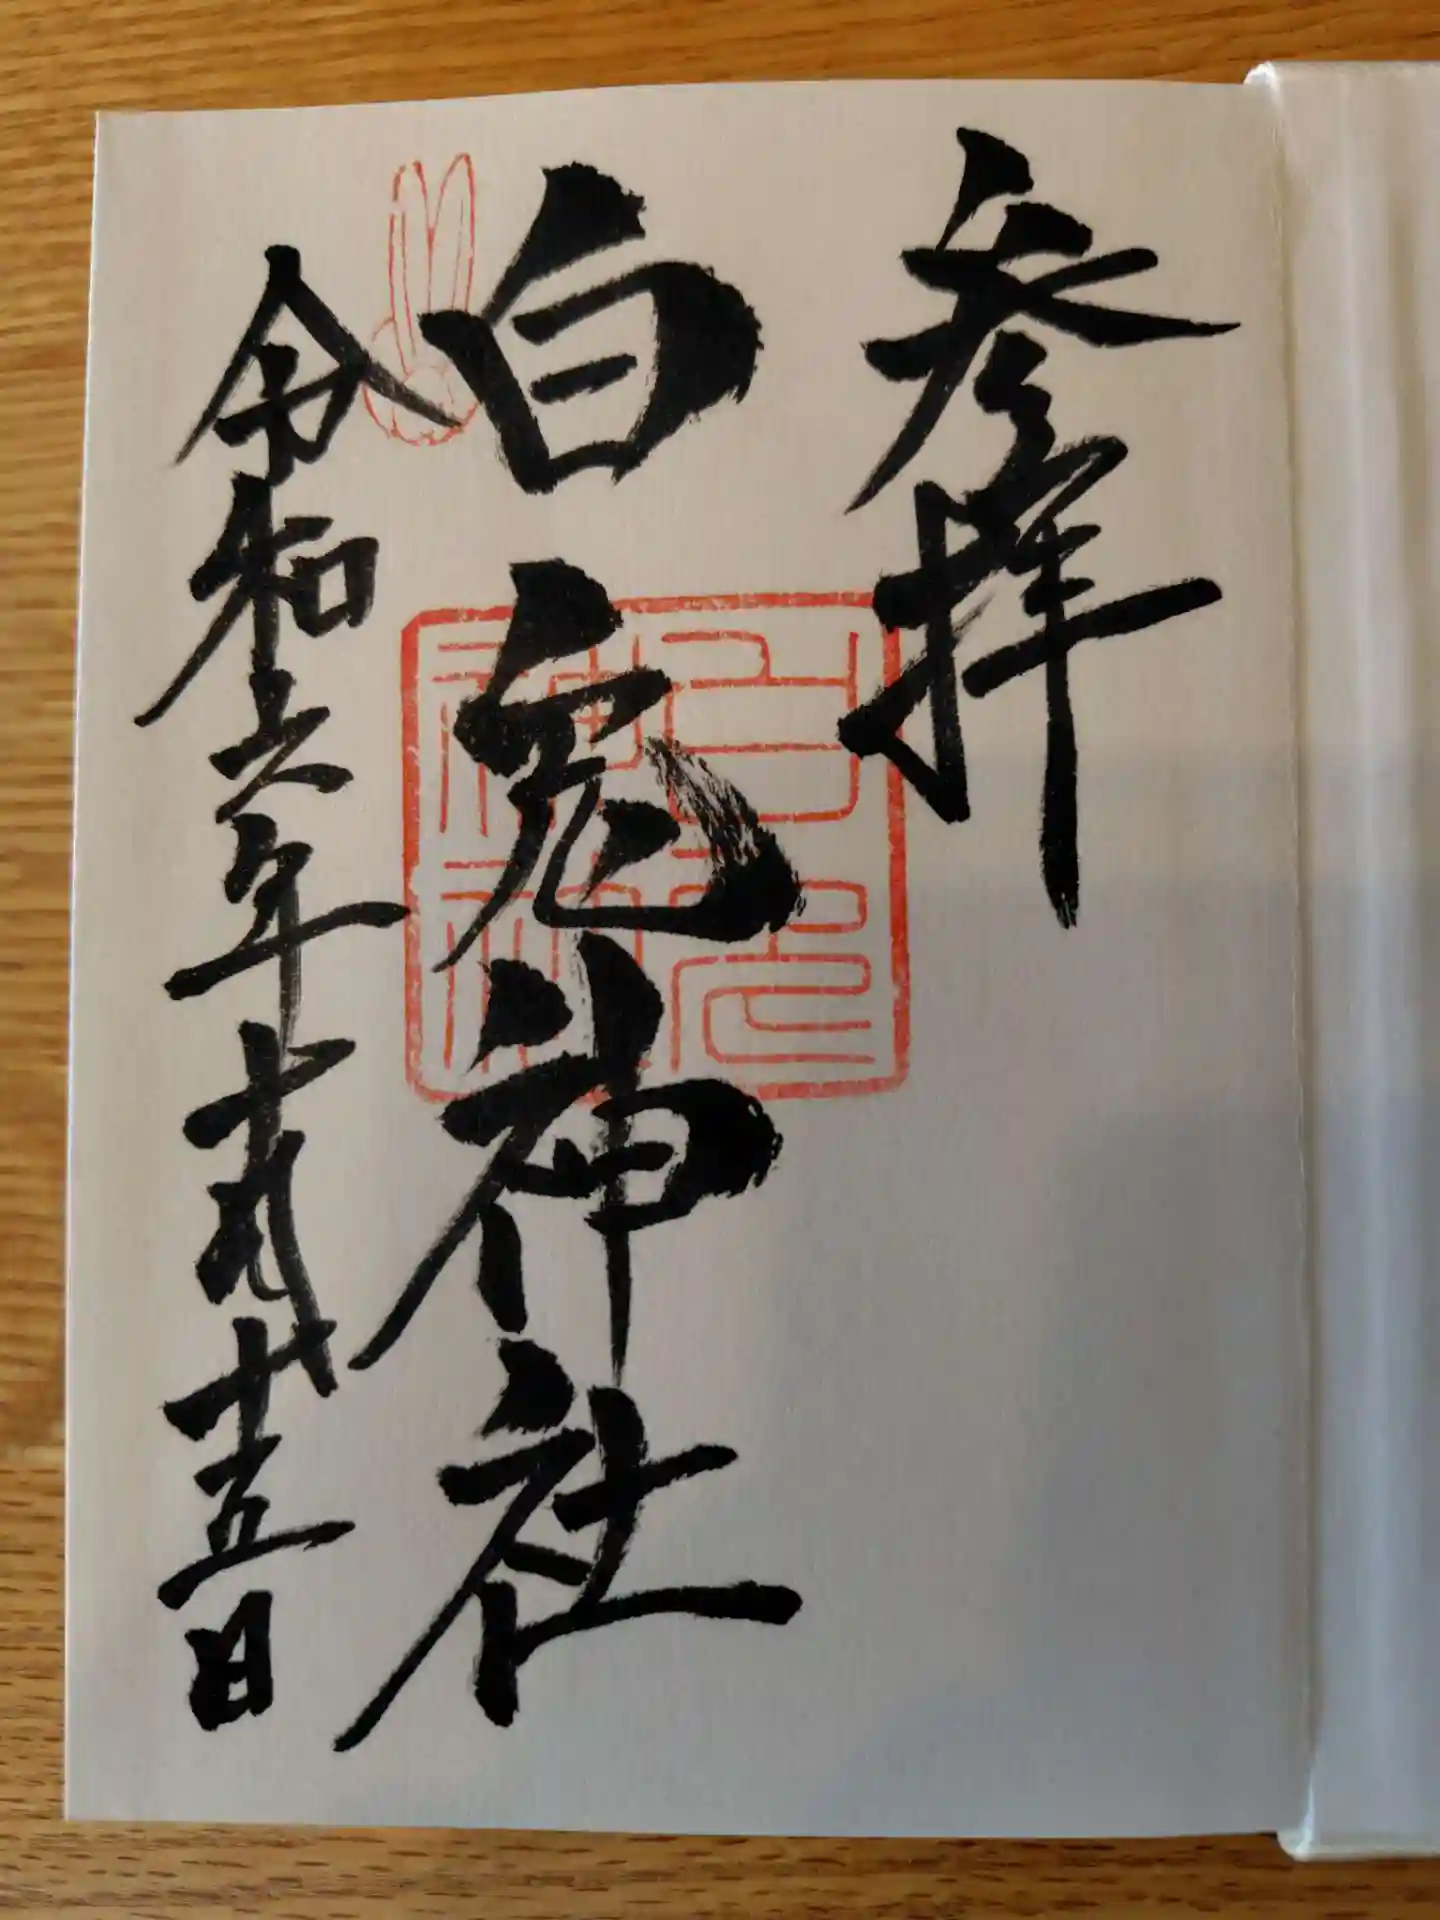 参拝
白兎神社
令和六年十一月廿五日
白兎神社